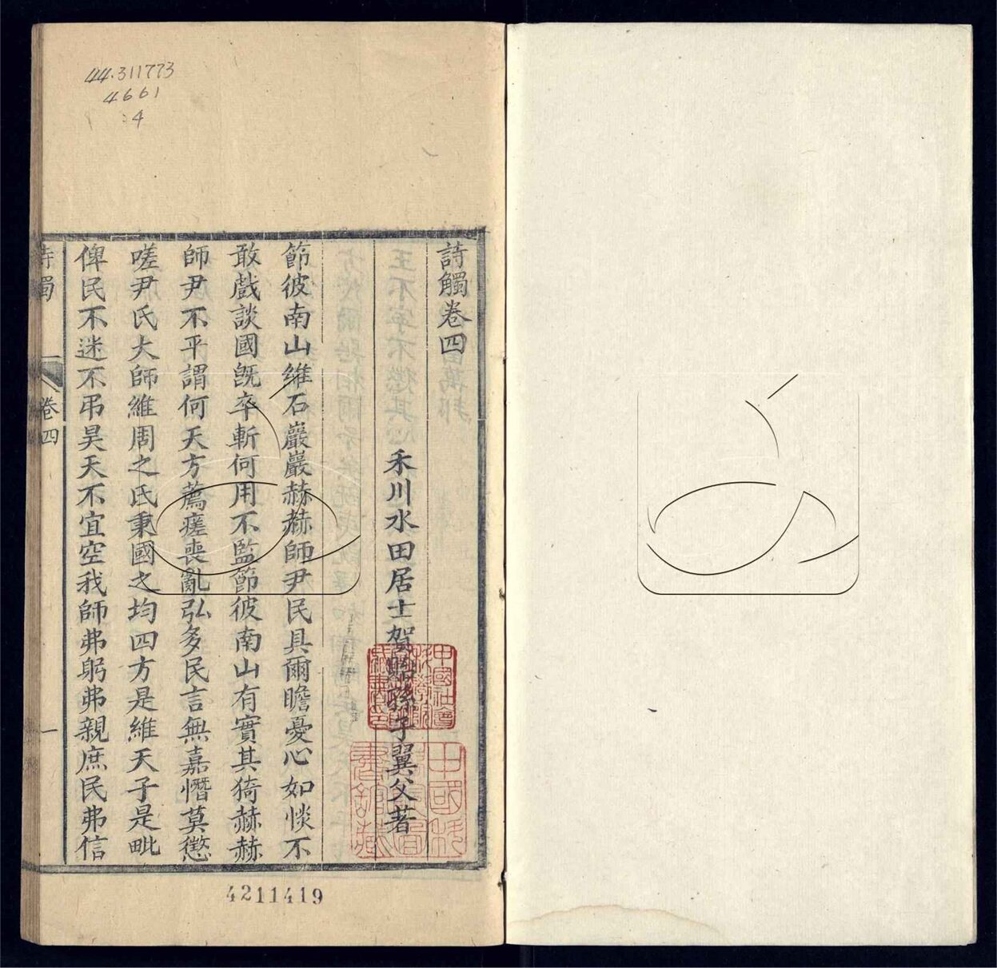 44.311773
4661
:4
詩觸卷四
禾川水田居士賀貽孫子翼父著
節彼南山維石巖巖赫赫師尹民具爾瞻憂心如惔不
敢戲談國旣卒斬何用不監節彼南山有實其猗赫赫
師尹不平謂何天方薦瘥喪亂弘多民言無嘉憯莫懲
嗟尹氏大師維周之氐秉國之均四方是維天子是毗
俾民不迷不弔昊天不宜空我師弗躬弗親庶民弗信
詩觸
卷四
一
4211419